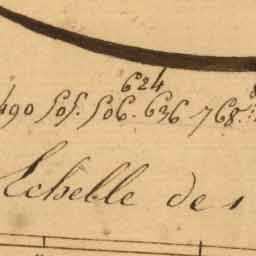 624
490 505. 506. 696 768.
Echelle des